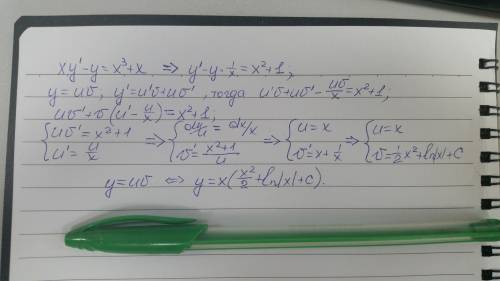 xy'-y=x³+x ⇒ y'-y·1/x=x²+1;
y=uv, y'=u'v+uv', тогда u'v+uv'-uv/x=x²+1;
uv'+v(u'-u/x)=x²+1,
{uv'=x²+1 u'=u/x ⇒ {du/u=dx/x v'=(x²+1)/u ⇒ {u=x v'=x+1/x ⇒ {u=x v=1/2x²+ln|x|+C
y=uv ⇔ y=x(x²/2+ln|x|+C).